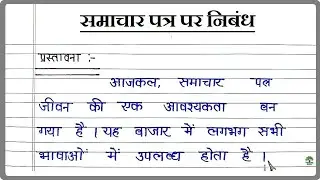 समाचार पत्र पर निबंध
प्रस्तावना :-
आजकल, समाचार पत्र
जीवन की एक आवश्यकता बन
गया है। यह बाजार में लगभग सभी
भाषाओं में उपलब्ध होता है।